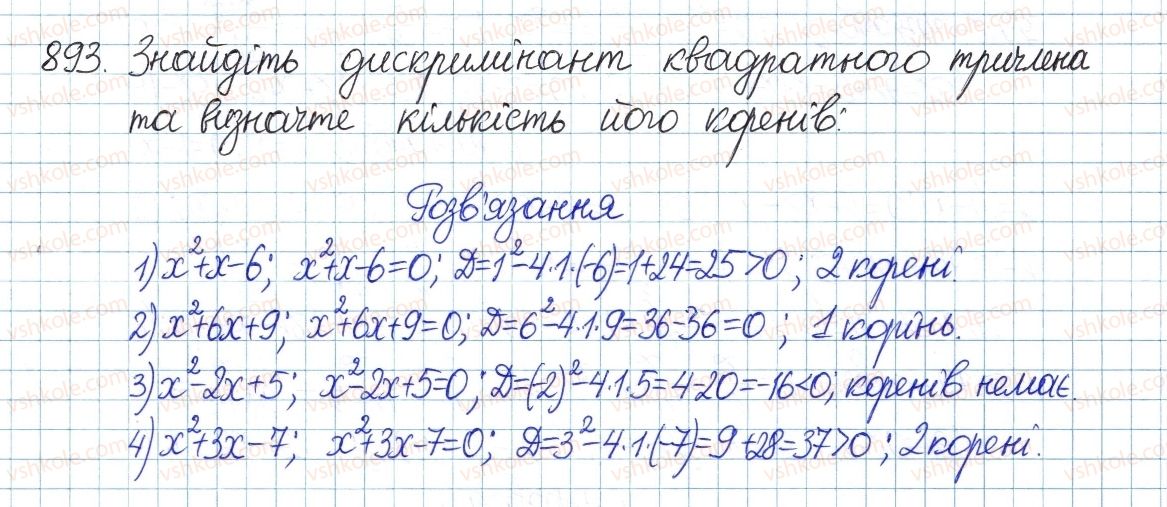 893. Знайдіть дискримінант квадратного тричлена
та відзначте кількість його коренів:
Розв'язання
1) x²+x-6; x²+x-6=0; Д=1²-4·1·(-6)=1+24=25>0; 2 корені.
2) x²+6x+9; x²+6x+9=0; Д=6²-4·1·9=36-36=0; 1 корінь.
3) x²-2x+5; x²-2x+5=0; Д=(-2)²-4·1·5=4-20=-16<0; коренів немає.
4) x²+3x-7; x²+3x-7=0; Д=3²-4·1·(-7)=9+28=37>0; 2 корені.